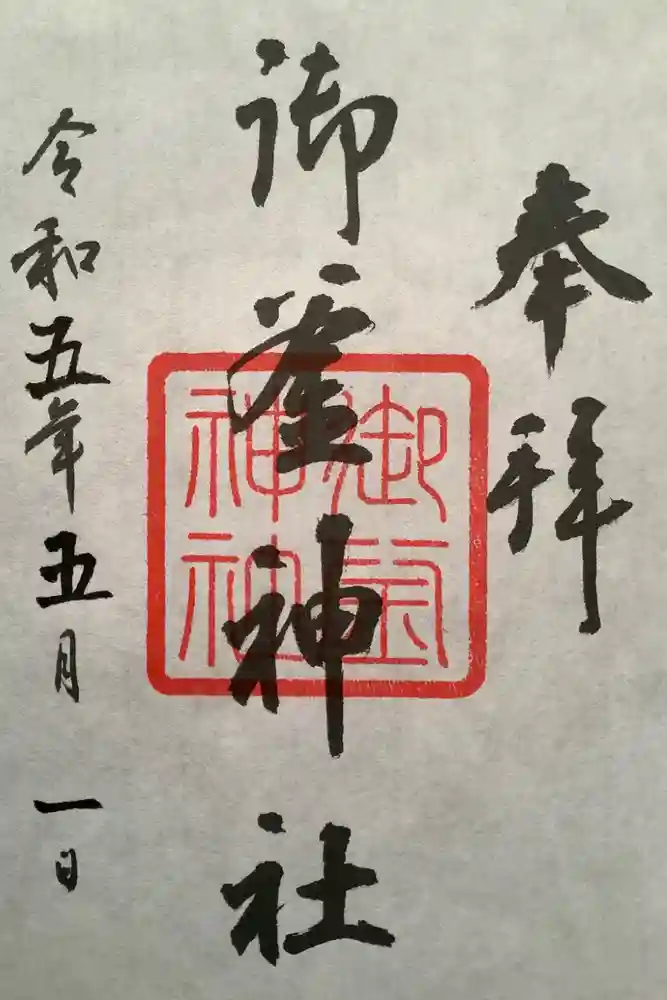 奉拝
御釜神社
御釜神社
令和五年五月一日